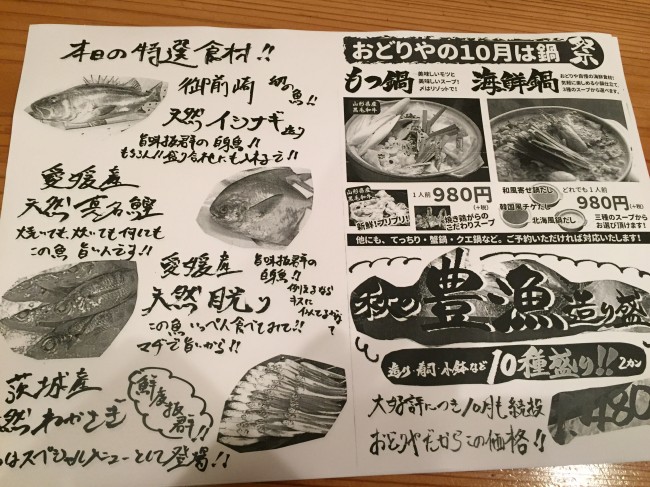 本日の特選食材!!
御前崎
の魚!!
天然イシナギ
旨味抜群の白身魚!!
もちろん!!盛り合わせにも入れるで!!
愛媛産
天然真名鰹
焼いても炊いても何にしても
この魚旨いんです!!
愛媛産
旨味抜群の
白身!!
例えるなら
キスに
似てるかなって
天然目光り
この魚いっぺん食べてみて!!
マヂで旨いから!!
茨城産
然わかさぎ
鮮度抜群!!
はスペシャルメニューとして登場!!
おどりやの10月は鍋祭
もつ鍋
美味しいモツと
美味しいスープ!
〆はリゾットで!
海鮮鍋
おどりや自慢の海鮮食材!
気軽に楽しめる小鍋仕立て。
3種のスープから選べます。
山形県産
黒毛和牛
山形県産
黒毛和牛
新鮮!プリプリ!
1人前 980円
(+税)
焼き鶏がらの
こだわりスープ
和風寄せ鍋だし
どれでも1人前
980円
(+税)
韓国風チゲだし
北海風鍋だし
三種のスープから
お選び頂けます!
他にも、てっちり・蟹鍋・クエ鍋など。ご予約いただければ対応いたします!
秋の豊漁造り盛
造り・寿司・小鉢など
10種盛り!!
2カン
大好評につき10月も続投
おどりやだからこの価格!!
480